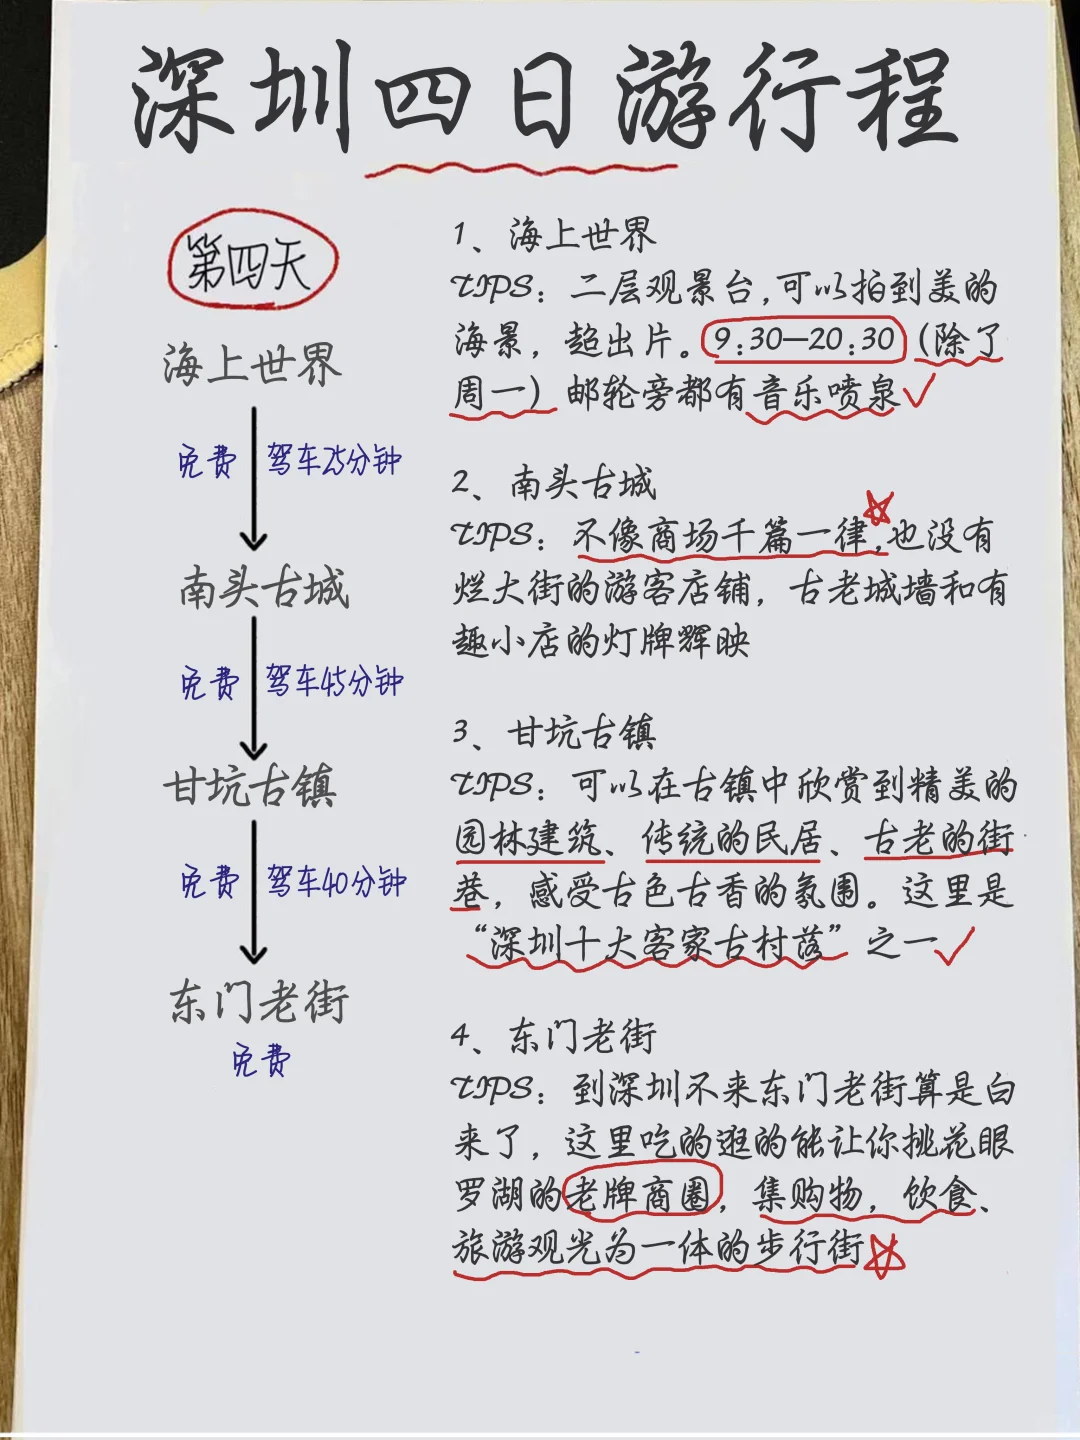 深圳四日游行程
第四天
海上世界
免费 驾车25分钟
南头古城
免费 驾车45分钟
甘坑古镇
免费 驾车40分钟
东门老街
免费
1、海上世界
TIPS：二层观景台，可以拍到美的
海景，超出片。9:30—20:30（除了
周一）邮轮旁都有音乐喷泉
2、南头古城
TIPS：不像商场千篇一律，也没有
烂大街的游客店铺，古老城墙和有
趣小店的灯牌辉映
3、甘坑古镇
TIPS：可以在古镇中欣赏到精美的
园林建筑、传统的民居、古老的街
巷，感受古色古香的氛围。这里是
“深圳十大客家古村落”之一
4、东门老街
TIPS：到深圳不来东门老街算是白
来了，这里吃的逛的能让你挑花眼
罗湖的老牌商圈，集购物，饮食、
旅游观光为一体的步行街